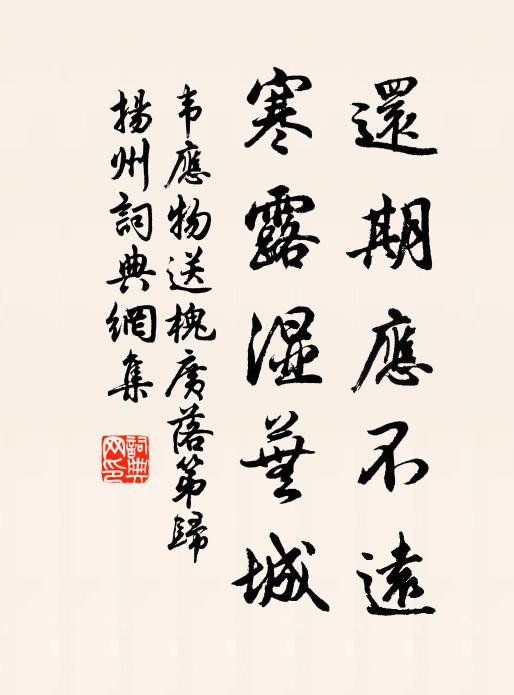 還期應不遠
寒露濕蕪城
韦應物送槐广落第歸
揚州詞典網集
詞典网印